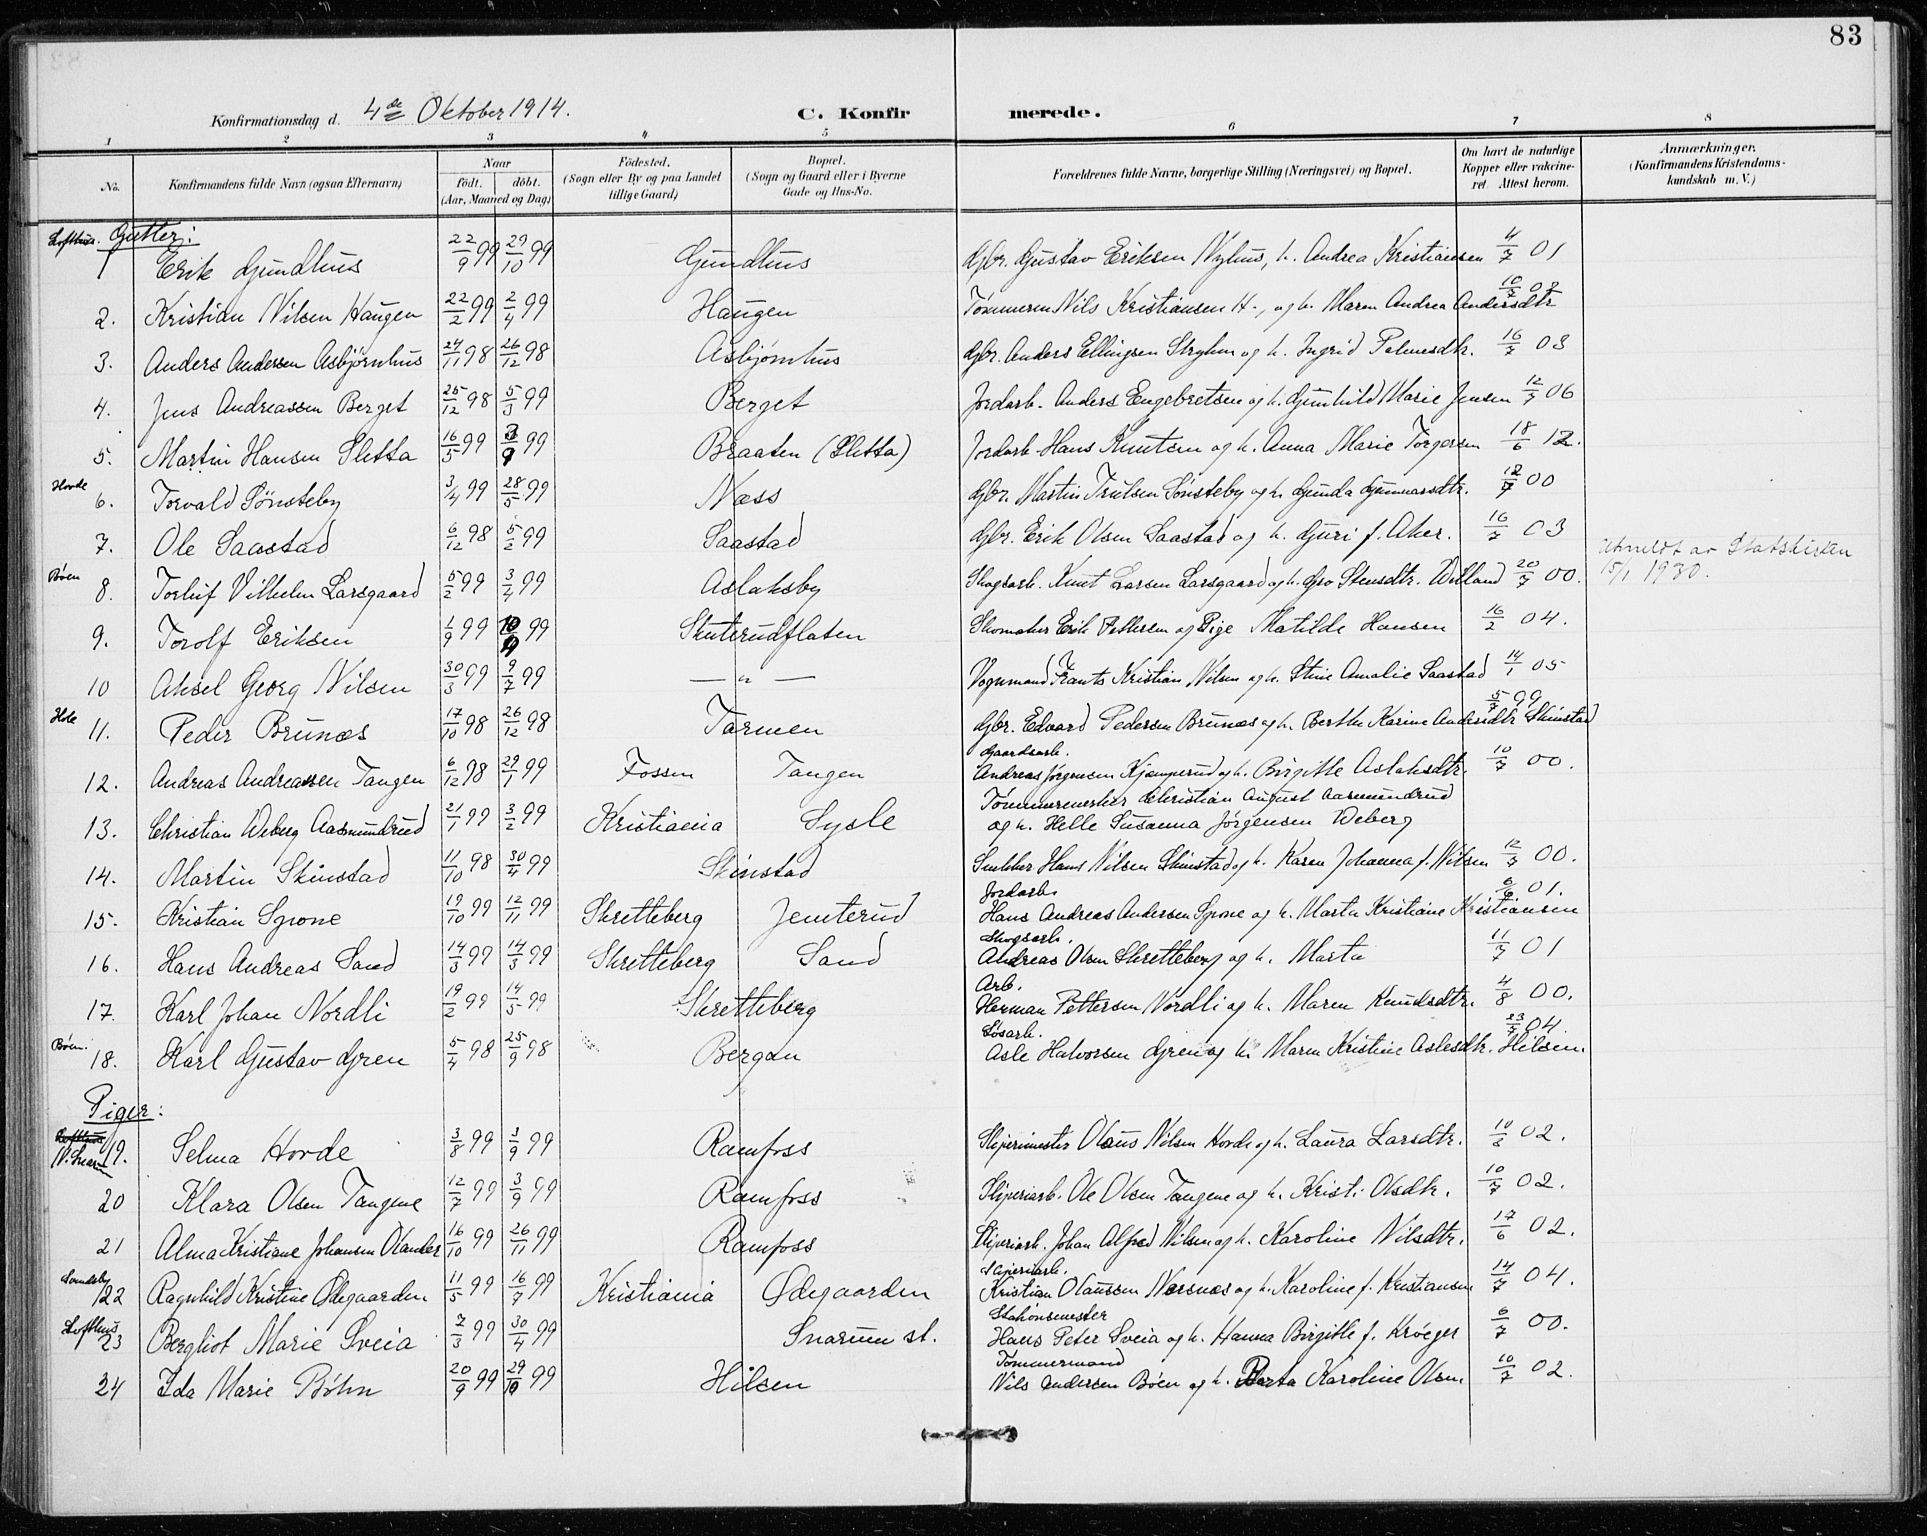 83
Konfirmationsdag d. 4de Oktober 1914. C. Konfirmerede.
1 2 3 4 5 6 7 8
No. Konfirmandens fulde Navn (ogsaa Efternavn) Naar födt. döbt. (Aar, Maaned og Dag) Födested. (Sogn eller By og paa Landet tillige Gaard) Bopæl. (Sogn og Gaard eller i Byerne Gade og Hus-No. Forældrenes fulde Navne, borgerlige Stilling (Næringsvei) og Bopæl. Om havt de naturlige Kopper eller vakcineret. Attest herom. Anmærkninger. (Konfirmandens Kristendomskundskab m. V.)
Lofthus. Gutter:
1 Erik Gundhus 22/9 99 29/10 99 Gundhus Gbr. Gustav Eriksen Nyhus, h. Andrea Kristiansen 4/7 01
2. Kristian Nilsen Haugen 22/2 99 2/4 99 Haugen Tømmerm Nils Kristiansen H., og h. Maren Andrea Andersdtr 10/7 02
3. Anders Andersen Asbjørnhus 24/11 98 26/12 98 Asbjørnhus Gbr. Anders Ellingsen Stryken og h. Ingrid Palmesdtr. 16/7 03
4. Jens Andreassen Berget 25/12 98 5/3 99 Berget Jordarb. Anders Engebretsen og h. Gunhild Marie Jensen 12/7 06
5. Martin Hansen Sletta 16/5 99 3/9 99 Braaten (Sletta) Jordarb. Hans Knutsen og h. Anna Marie Torgersen 18/6 12.
Horde 6. Torvald Sønsteby 3/4 99 28/5 99 Næss Gbr. Martin Trulsen Sønsteby og h. Gunda Gunnarsdtr. 12/7 00
7. Ole Saastad 6/12 98 5/2 99 Saastad Gbr. Erik Olsen Saastad og h. Guri f. Aker. 16/7 03
Utmeldt av Statskirken
Bøen 8. Torleif Vilhelm Larsgaard 5/2 99 3/4 99 Aslaksby Skogsarb. Knut Larsen Larsgaard og h. Gro Stensdtr. Villand 20/7 00. 15/1 1930.
9. Torolf Eriksen 1/9 99 10/9 99 Skuterudflaten Skomaker Erik Pettersen og Pige Matilde Hansen 16/2 04.
10 Aksel Georg Nilsen 30/3 99 9/7 99 — " — Vognmand Frants Kristian Nilsen og h. Stine Amalie Saastad 14/1 05
Hole 11. Peder Brunæs 17/10 98 26/12 98 Tarmen Gbr. Edvard Pedersen Brunæs og h. Berthe Karine Andersdtr Skinstad 5/7 99
Gaardsarb.
12. Andreas Andreassen Tangen 6/12 98 29/1 99 Fossen Tangen Andreas Jørgensen Kjemperud og h. Birgitte Aslaksdtr. 10/7 00.
Tømmermerker Christian August Aasmundrud
13. Christian Weberg Aasmundrud 21/1 99 3/2 99 Kristiania Sysle og h. Helle Susanna Jørgensen Weberg
14. Martin Skinstad 11/10 98 30/4 99 Skinstad Snekker Hans Nilsen Skinstad og h. Karen Johanna f. Nilsen 12/7 00.
Jordarb.
15. Kristian Spone 19/10 99 12/11 99 Skretteberg Jemterud Hans Andreas Andersen Spone og h. Marta Kristiane Kristiansen 6/6 01.
Skogsarb.
16. Hans Andreas Sand 14/3 99 14/3 99 Skretteberg Sand Andreas Olsen Skretteberg og h. Marta 11/7 01
Arb.
17. Karl Johan Nordli 19/2 99 14/5 99 Skretteberg Herman Pettersen Nordli og h. Maren Knudsdtr. 4/8 00.
Løsarb.
Bøen. 18. Karl Gustav Gren 5/4 98 25/9 98 Bergan Asle Halvorsen Gren og h. Maren Kristine Aslesdtr. Hilsen. 23/7 04.
Piger:
Lofthus
N. Snarum 19. Selma Horde 3/8 99 3/9 99 Ramfoss Sliperimester Olaus Nilsen Horde og h. Laura Larsdtr. 10/2 02.
20 Klara Olsen Tangene 12/7 99 3/9 99 Ramfoss Sliperiarb. Ole Olsen Tangene og h. Kristi Olsdtr. 10/7 02.
21 Alma Kristiane Johansen Olander 16/10 99 26/11 99 Ramfoss Sliperiarb. Johan Alfred Nilsen og h. Karoline Nilsdtr. 17/6 02.
Sliperiarb.
22 Ragnhild Kristine Ødegaarden 11/5 99 16/7 99 Kristiania Ødegaarden Kristian Olaussen Næsnæs og h. Karoline f. Kristiansen 14/7 04.
Stationsmester
Lofthus 23 Bergliot Marie Sveia 7/3 99 30/4 99 Snarum st. Hans Peter Sveia og h. Hanna Birgitte f. Krøeger 6/7 00.
Tømmermand
24 Ida Marie Böhn 20/9 99 29/10 99 Hilsen Nils Andersen Böen og h. Berta Karoline Olsen. 10/7 02.